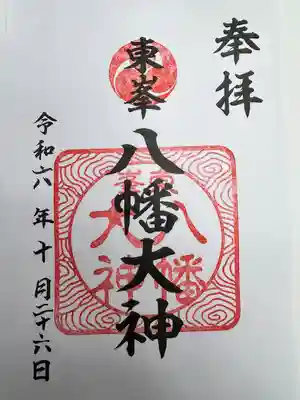 奉拝
東峯
八幡大神
令和六年十月二十六日
八幡
大神